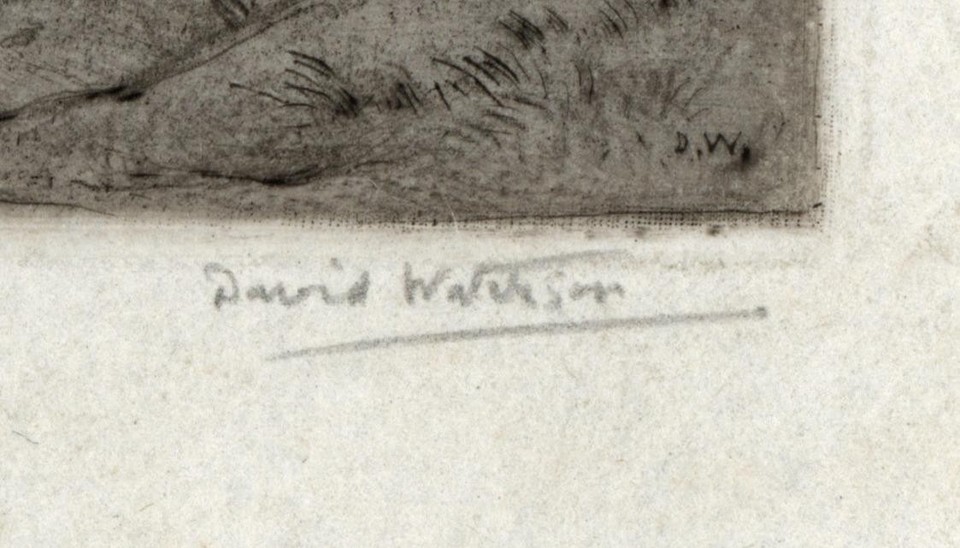 D.W.
David Waterson